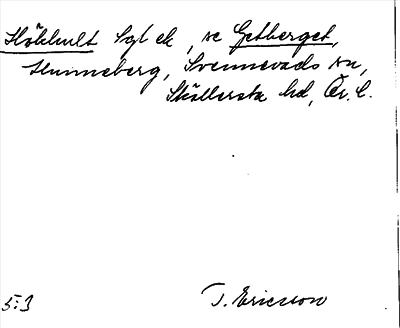 Hökhult Sgl ek, se Getberget,
Hunneberg, Svennevads sn,
Sköllersta hd, Ör. l.
5:3
T. Ericsson